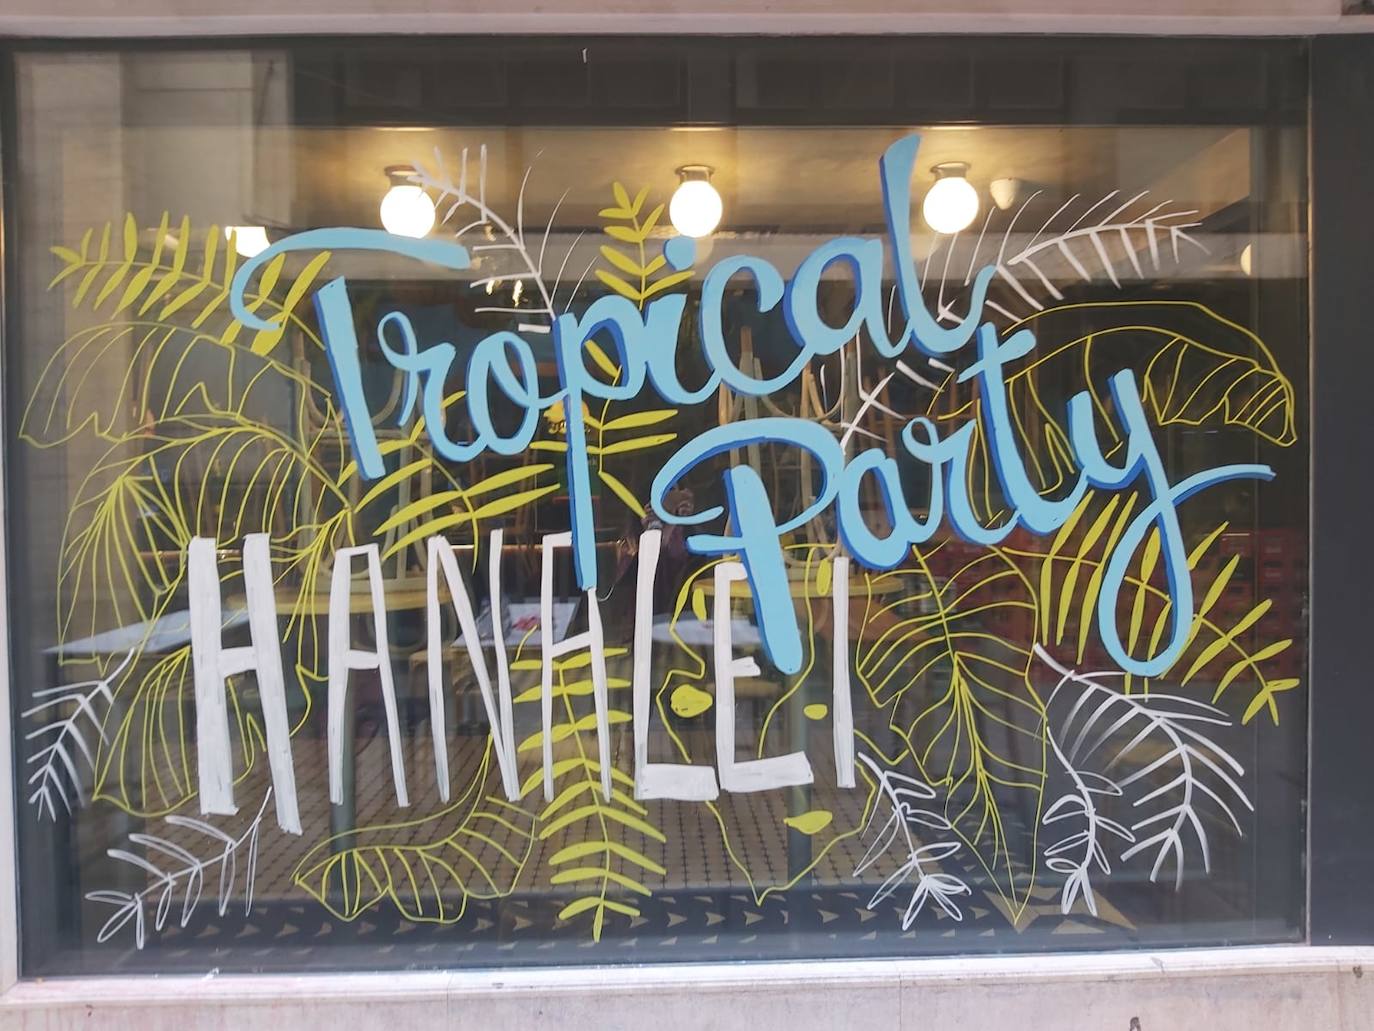 Tropical
Party
HANALEI